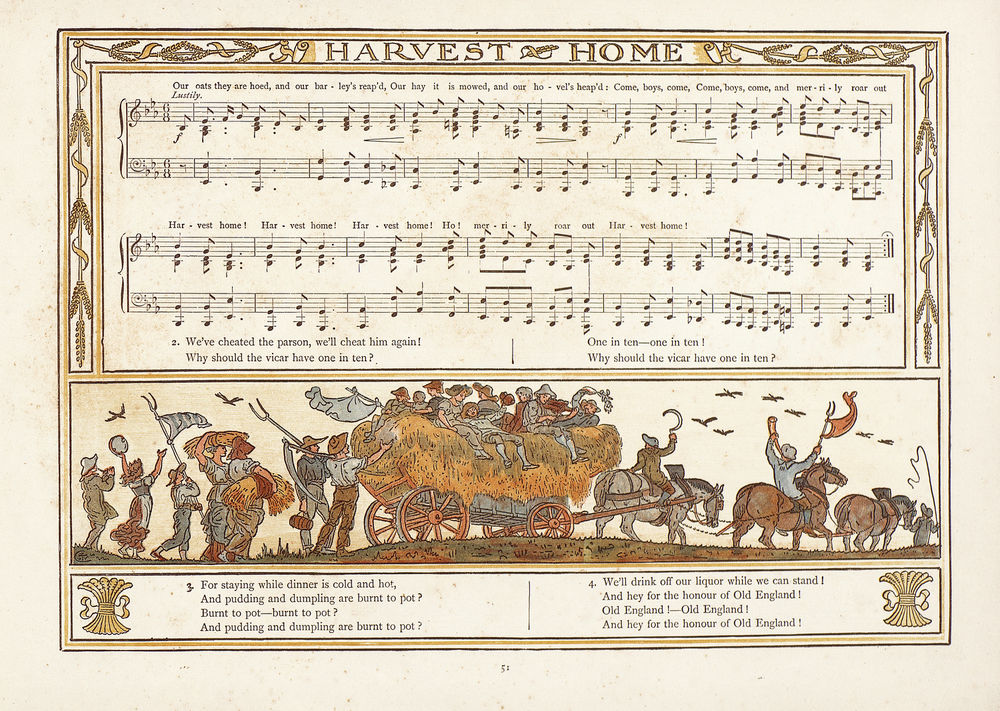 HARVEST HOME
Our oats they are hoed, and our bar - ley's reap'd, Our hay it is mowed, and our ho - vel's heap'd: Come, boys, come, Come, boys, come, and mer - ri - ly roar out
Lustily.
f
f
Har - vest home! Har - vest home! Har - vest home! Ho! mer - ri - ly roar out Har - vest home!
2. We've cheated the parson, we'll cheat him again!
Why should the vicar have one in ten?
One in ten—one in ten!
Why should the vicar have one in ten?
3. For staying while dinner is cold and hot,
And pudding and dumpling are burnt to pot?
Burnt to pot—burnt to pot?
And pudding and dumpling are burnt to pot?
4. We'll drink off our liquor while we can stand!
And hey for the honour of Old England!
Old England!—Old England!
And hey for the honour of Old England!
51